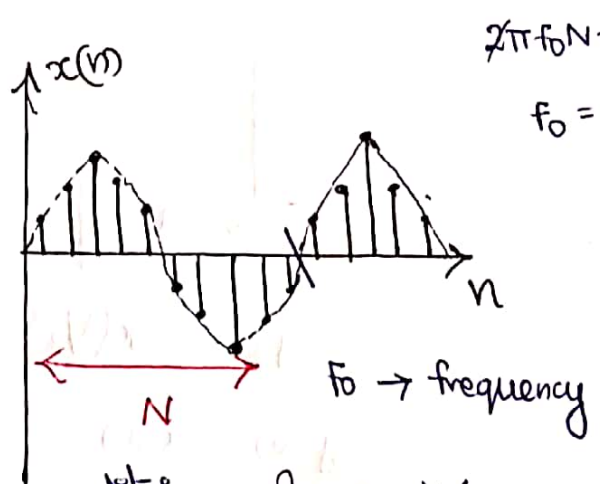 x(n)
2πf₀N
f₀ =
n
N
F₀ → frequency